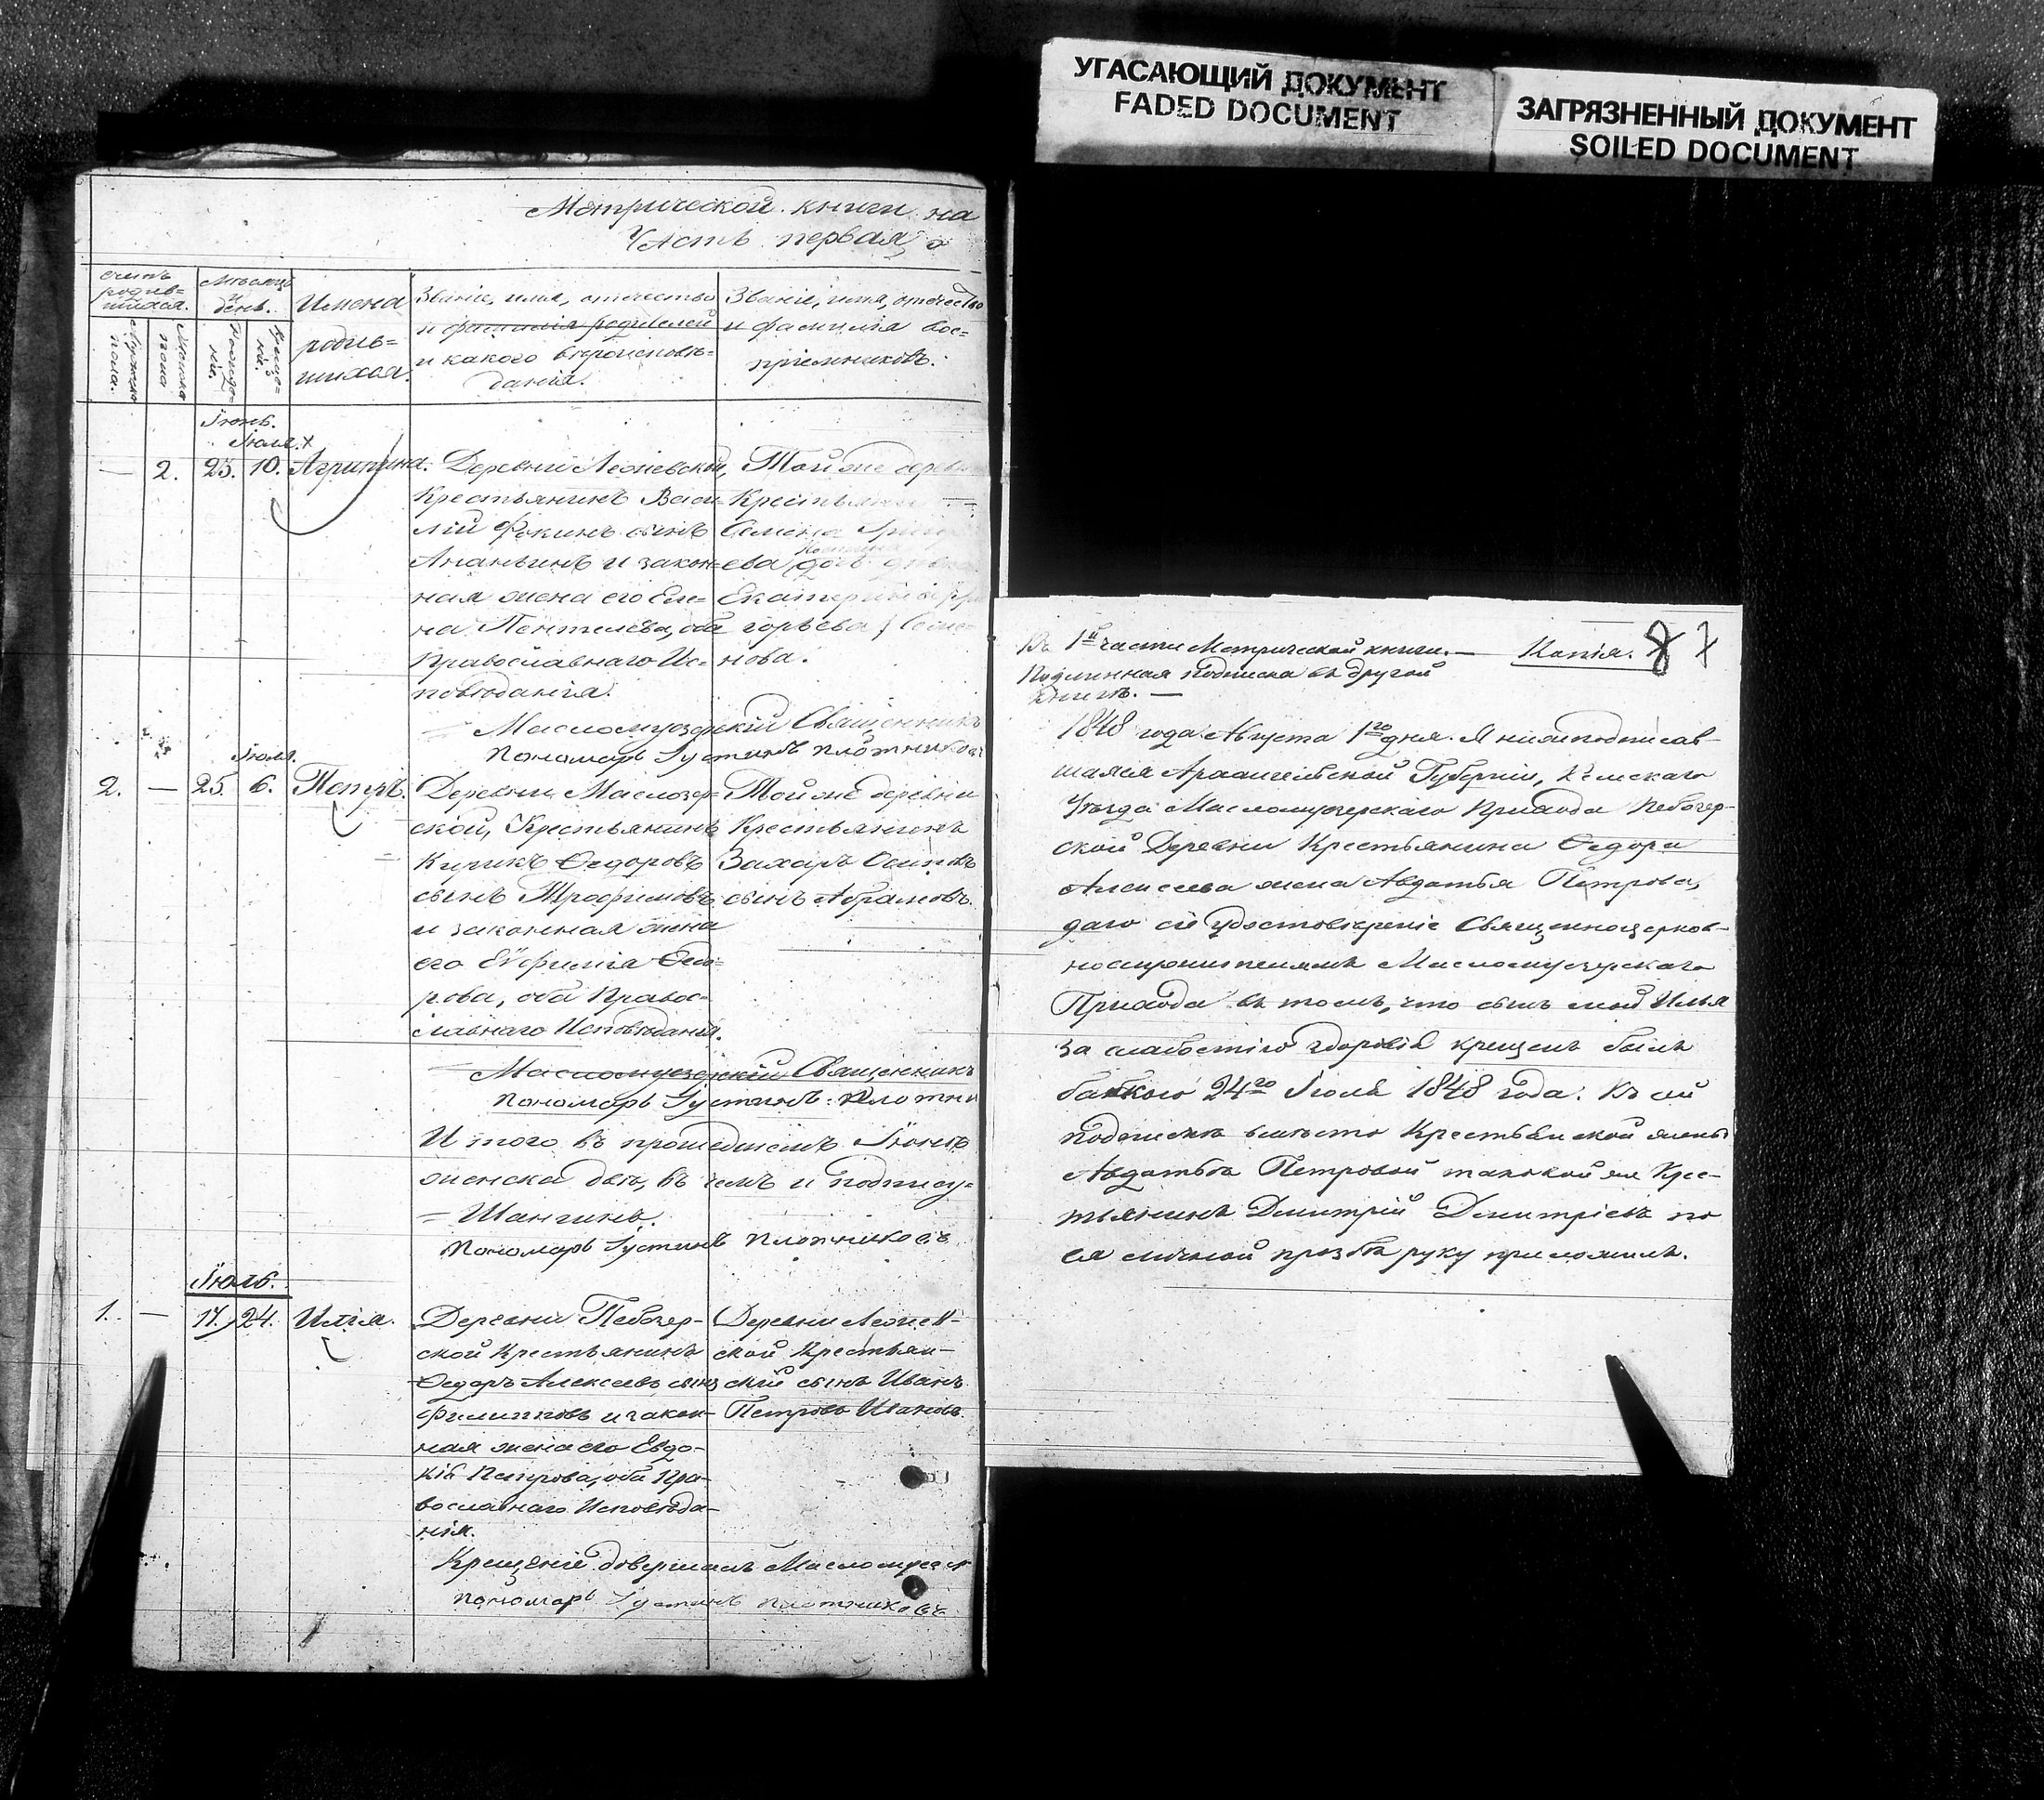 УГАСАЮЩИЙ ДОКУМЕНТ
FADED DOCUMENT
ЗАГРЯЗНЕННЫЙ ДОКУМЕНТ
SOILED DOCUMENT
Метрической книги на
Часть первая, о
счетъ родив-шихся.
Мужеска пола.
Женска пола
Мѣсяцъ и день.
Рожде-нія.
Креще-нія.
Имена
родив-
шихся.
Званіе, имя, отчество
и фамилія родителей
и какого вѣроисповѣ-
данія.
Званіе, имя, отчество
и фамилія вос-
пріемниковъ.
Іюнь.
Іюля.
— 2. 25. 10. Агрипина.
Деревни Лежевской,
Крестьянинъ Васи-
лій Фокинъ сынъ
Ананьинъ и закон-
ная жена его Еле-
на Пентелева, оба
Православнаго Ис-
повѣданія.
Той же
Крестьян
Семена
ева
Екатерина
горьева Семе-
нова.
— Масломуозерскій Священникъ
Пономарь Іустинъ Плотников
Іюля.
2. — 25. 6. Петръ.
Деревни Маслозер-
ской, Крестьянинъ
Кирикъ Ѳедоровъ
сынъ Трофимовъ
и законная жена
его Евфимія Ѳедо-
рова, оба Правос-
лавнаго Исповѣданія.
Той же деревни
Крестьянинъ
Захаръ Осиповъ
сынъ Абрамовъ.
— Масломуозерскій Священникъ
Пономарь Іустинъ Плотни
Итого въ прошедшемъ Іюнѣ
женска двѣ, въ чемъ и подпису-
— Шангинъ.
Пономарь Іустинъ Плотниковъ
Іюль.
1. — 17. 24. Илія.
Деревни Пебозер-
ской Крестьянинъ
Ѳедоръ Алексеевъ сынъ
Филипповъ и закон-
ная жена его Евдо-
кія Петрова, оба Пра-
вославнаго Исповѣда-
нія.
Деревни Лежев-
ской Крестьян-
скій сынъ Иванъ
Петровъ Ивановъ.
Крещеніе довершалъ Масломуозе
Пономарь Іустинъ Плотниковъ
Въ 1й части Метрической книги. — Копія. 8 7
Подлинная подписка въ другой
книгѣ. —
1848 года Августа 1го дня. Я нижеподписав-
шаяся Архангельской Губерніи, Кемскаго
Уѣзда Масломуозерскаго Прихода Пебозер-
ской Деревни Крестьянина Ѳедора
Алексеева жена Авдотья Петрова,
даю сіе удостовѣреніе Священноцерков-
нослужителямъ Масломуозерскаго
Прихода въ томъ, что сынъ мой Илья
за слабостію здоровія крещенъ былъ
бабкою 24го Іюля 1848 года. Къ сей
подпискѣ вмѣсто Крестьянской жены
Авдотьи Петровой таковой же Крес-
тьянинъ Дмитрій Дмитріевъ по
ея личной прозбѣ руку приложилъ.